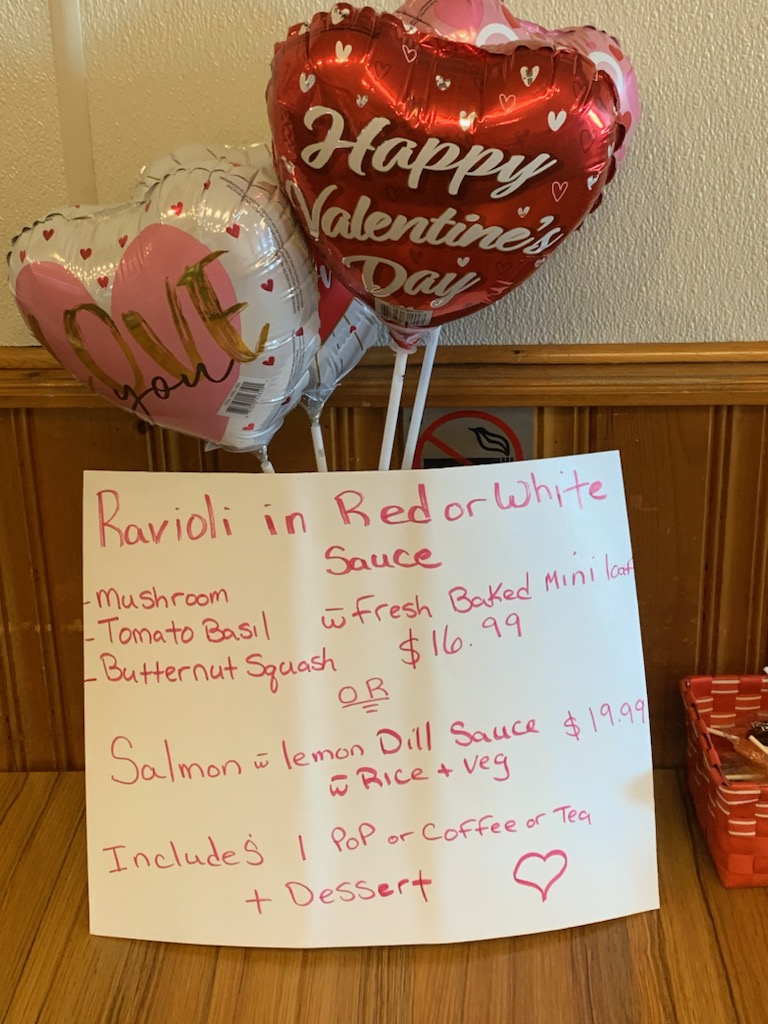 Happy
Valentine's
Day
LOVE
you
Ravioli in Red or White
Sauce
-Mushroom
-Tomato Basil
-Butternut Squash
w̄ Fresh Baked Mini loaf
$16.99
OR
Salmon w̄ lemon Dill Sauce $19.99
w̄ Rice + veg
Includes 1 Pop or Coffee or Tea
+ Dessert